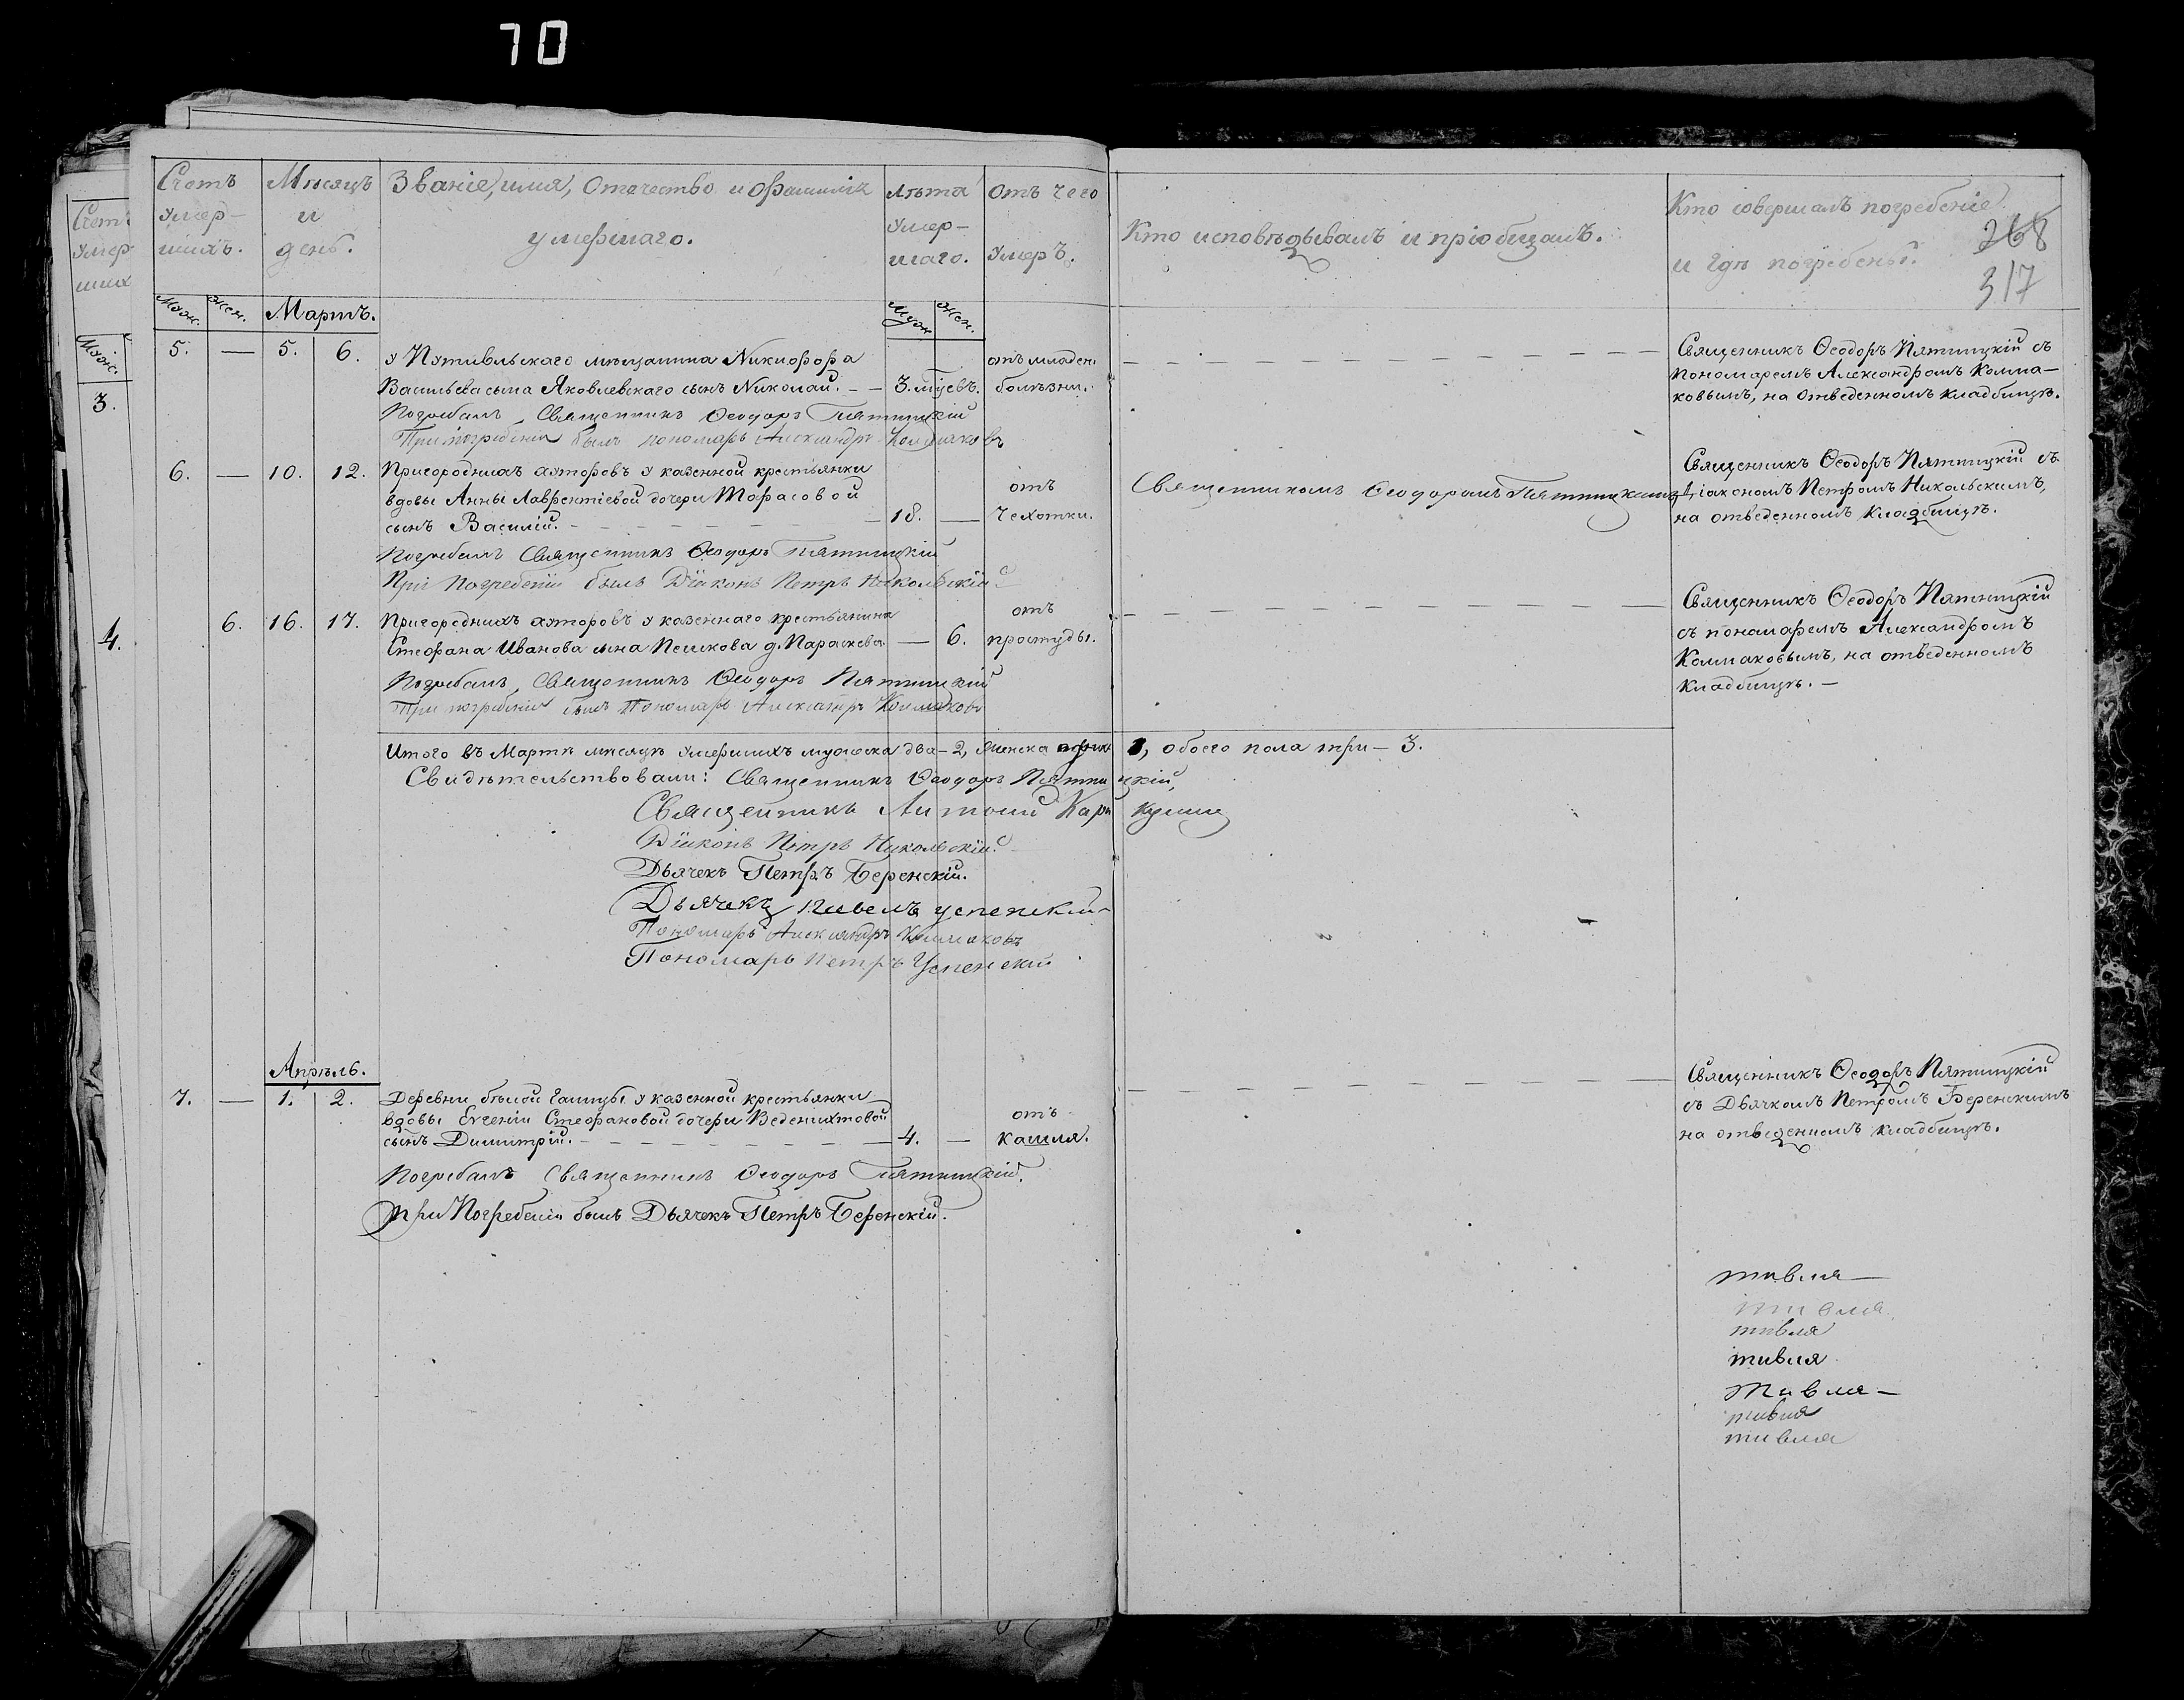 70
Счетъ умер-шихъ.
Мѣсяцъ и день.
Званіе, имя, отчество и фамилія умершаго.
Лѣта умер-шаго.
Отъ чего умеръ.
Кто исповѣдывалъ и пріобщалъ.
Кто совершалъ погребеніе и гдѣ погребены.
268
317
Муж. Жен. Мартъ. Муж. Жен.
5. — 5. 6. у Путивльскаго мѣщанина Никифора
Васильева сына Яковлевскаго сынъ Николай. — — 3. мѣсецъ. отъ младен. болѣзни.
Священникъ Ѳеодоръ Пятницкій съ
пономаремъ Александромъ Колма-
ковымъ, на отведенномъ кладбищѣ.
Погребалъ Священникъ Ѳеодоръ Пятницкій
При погребеніи былъ пономарь Александръ Колмаковъ
6. — 10. 12. Пригороднихъ хуторовъ у казенной крестьянки
вдовы Анны Лаврентіевой дочери Тарасовой
сынъ Василій. — 18. — отъ чехотки.
Священникомъ Ѳеодоромъ Пятницкимъ
Священникъ Ѳеодоръ Пятницкій съ
Діакономъ Петромъ Никольскимъ,
на отведенномъ кладбищѣ.
Погребалъ Священникъ Ѳеодоръ Пятницкій
При погребеніи былъ Діаконъ Петръ Никольскій
6. 16. 17. Пригороднихъ хуторовъ у казеннаго крестьянина
Стефана Иванова сына Пешкова д. Параскева — 6. отъ простуды.
Священникъ Ѳеодоръ Пятницкій
съ пономаремъ Александромъ
Колмаковымъ, на отведенномъ
кладбищѣ. —
Погребалъ Священникъ Ѳеодоръ Пятницкій
При погребеніи былъ Пономарь Александръ Колмаковъ
Итого въ Мартѣ мѣсяцѣ умершихъ мужеска два — 2, женска одна 1, обоего пола три — 3.
Свидѣтельствовали: Священникъ Ѳеодоръ Пятницкій,
Священникъ Антоній
Діаконъ Петръ Никольскій.
Дьячекъ Петръ Беренскій.
Дьячекъ Павелъ Успенскій
Пономарь Александръ Колмаковъ
Пономарь Петръ Успенскій
Апрѣль.
7. — 1. 2. Деревни бѣлой Галицы у казенной крестьянки
вдовы Евгеніи Стефановой дочери
сынъ Димитрій. — 4. — отъ кашля.
Священникъ Ѳеодоръ Пятницкій
съ Дьячкомъ Петромъ Беренскимъ
на отведенномъ кладбищѣ.
Погребалъ Священникъ Ѳеодоръ Пятницкій.
При Погребеніи былъ Дьячекъ Петръ Беренскій.
тивля —
тивля
тивля
тивля
тивля —
тивля
тивля
Счет
умер
ших
Муж.
3.
4.